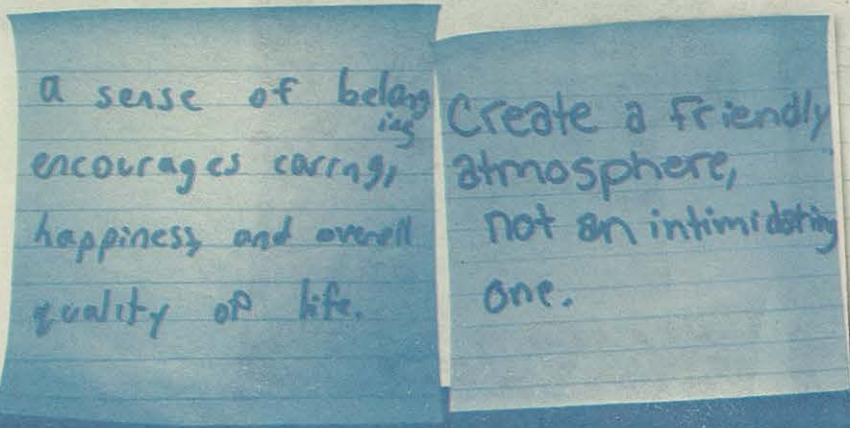 a sense of belong
ing
encourages caring,
happiness, and overall
quality of life.
Create a friendly
atmosphere,
not an intimidating
one.